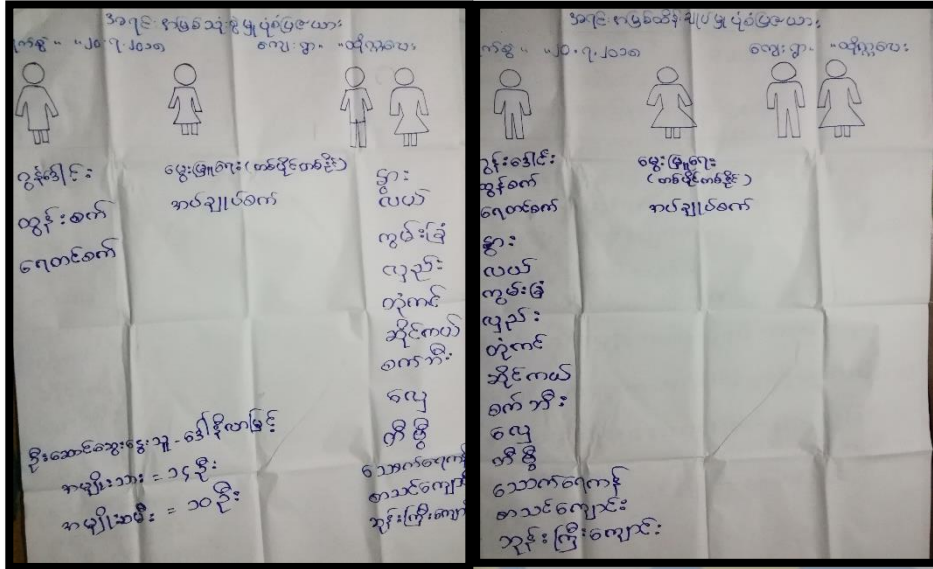 အရင်းအမြစ်သုံးစွဲမှုပုံစံပြဇယား
ရက်စွဲ - ၂၀.၇.၂၀၁၈ ကျေးရွာ -
ဂွန်ဒေါင်း
ထွန်းစက်
ရေတင်စက်
မွေးမြူရေး (တစ်ပိုင်တစ်နိုင်)
အပ်ချုပ်စက်
နွား
လယ်
ကွမ်းခြံ
လှည်း
တုံကင်
ဆိုင်ကယ်
စက်ဘီး
လှေ
တီဗွီ
သောက်ရေကန်
စာသင်ကျောင်း
ဘုန်းကြီးကျောင်း
ဦးဆောင်ဆွေးနွေးသူ - ဒေါ်နီလာမြင့်
အမျိုးသား = ၁၄ ဦး
အမျိုးသမီး = ၁၀ ဦး
အရင်းအမြစ်ထိန်းချုပ်မှုပုံစံပြဇယား
ရက်စွဲ - ၂၀.၇.၂၀၁၈ ကျေးရွာ -
ဂွန်းဒေါင်း
ထွန်စက်
ရေတင်စက်
နွား
လယ်
ကွမ်းခြံ
လှည်း
တုံကင်
ဆိုင်ကယ်
စက်ဘီး
လှေ
တီဗွီ
သောက်ရေကန်
စာသင်ကျောင်း
ဘုန်းကြီးကျောင်း
မွေးမြူရေး
(တစ်ပိုင်တစ်နိုင်)
အပ်ချုပ်စက်